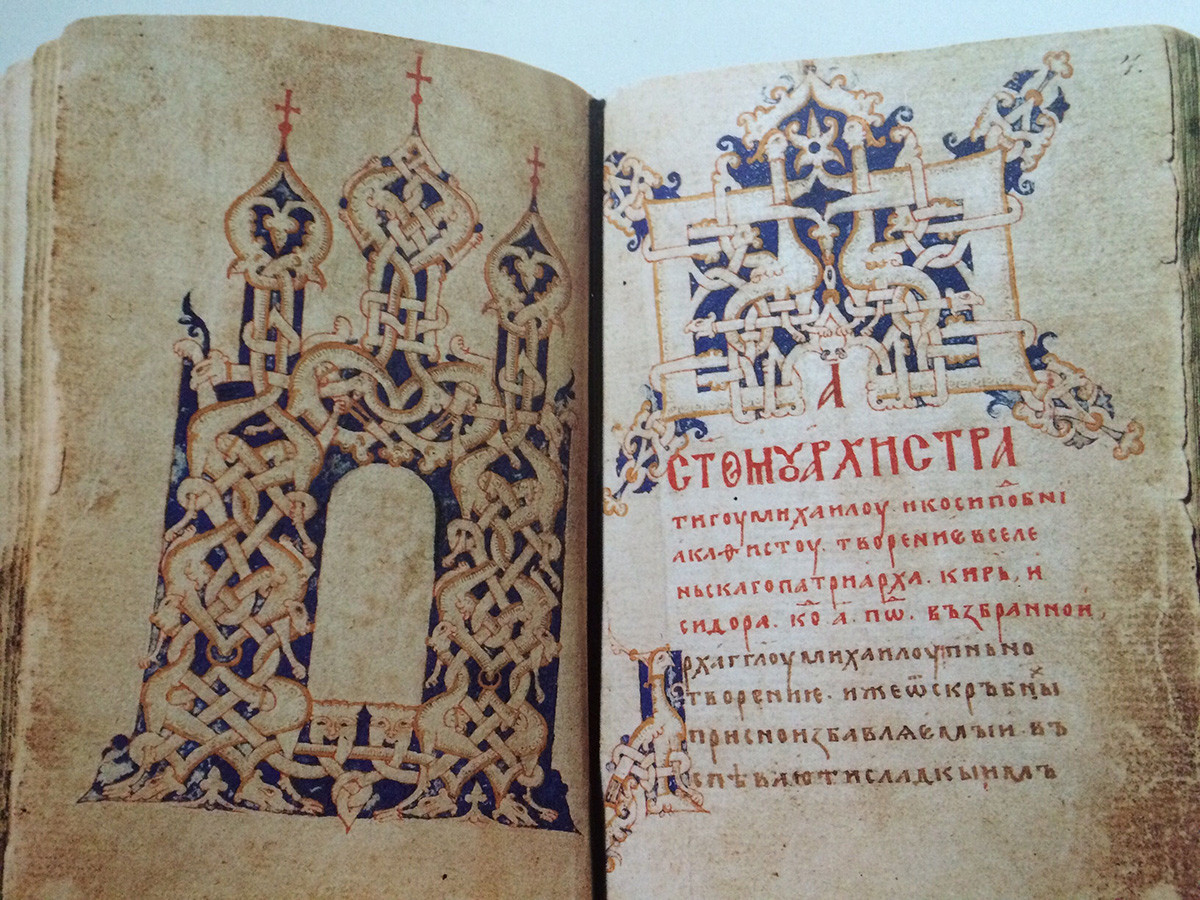 А
СТОМꙊАРХИСТРА
тигоу михаилоу. и коси по̑бнї
акаѳистоу. творениѥ вселе
ньскаго патриарха. кирь, и
сидора. ко̑. а҃. пѡ̑. възбранной,
Архагглоу михаилоу пньно
творениѥ. иже ѿ скръбны
присно избавлꙗемыи. въ
спѣваюти сладкыимъ